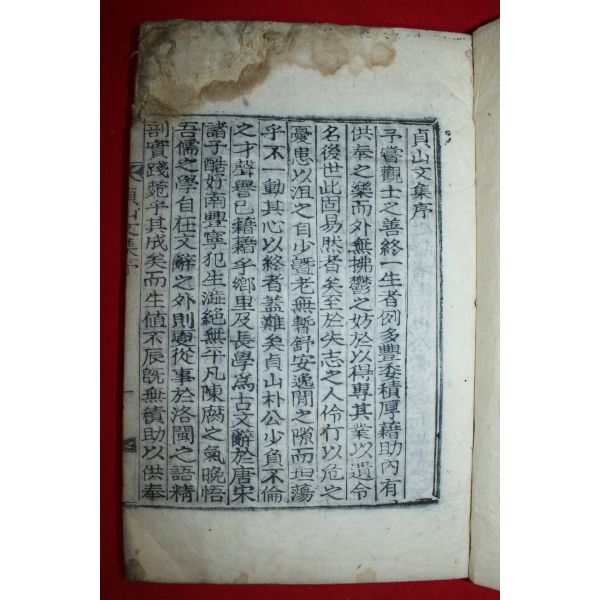 貞山文集序
予嘗觀士之善終一生者例多豐委積厚藉助內有
供奉之樂而外無拂鬱之妨於以得專其業以遺令
名後世此固易然者矣至於失志之人伶仃以危之
憂患以沮之自少曁老無暫舒安逸閒之隙而坦蕩
乎不一動其心以終者蓋難矣貞山朴公少負不倫
之才聲譽已藉藉乎鄉里及長學爲古文辭於唐宋
諸子酷好南豐寧犯生澁絕無平凡陳腐之氣晚悟
吾儒之學自在文辭之外則更從事於洛閩之語精
剖實踐蔇乎其成矣而生值不辰旣無積助以供奉
貞山文集序
一